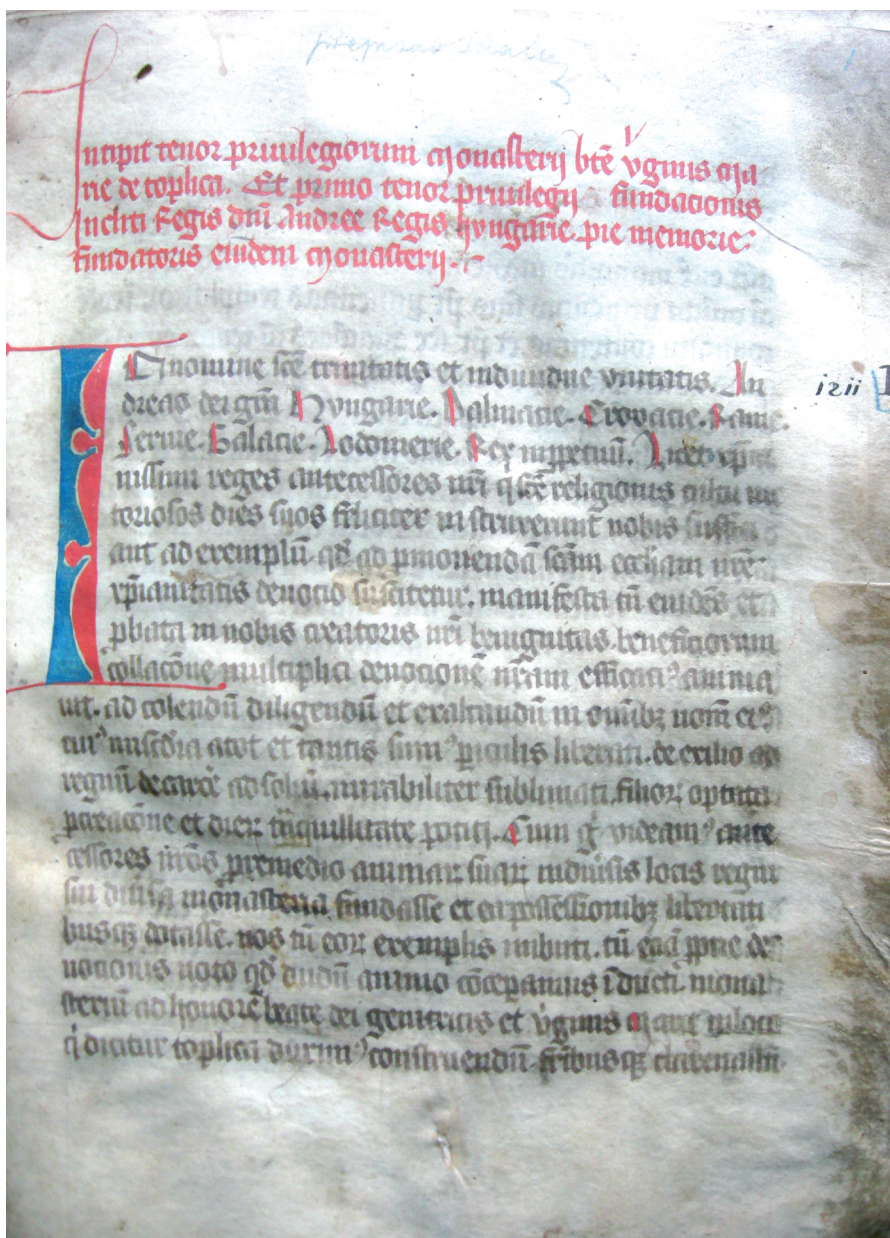 Incipit tenor priuilegiorum Monasterij bte v'ginis Ma
rie de toplica. Et primo tenor priuilegij fundacionis
Incliti Regis dni Andree Regis hvngarie. pie memorie
fundatoris eiusdem Monasterij.
In nomine sce trinitatis et indiuidue vnitatis. An
dreas dei gra Hvngarie. Dalmacie. Crovacie. Rame.
Seruie. Galacie. Lodomerie. Rex inppetuu. Licet xpia
nissimi reges antecessores nri q sce religionis cultu uic
toriosos dies suos feliciter
aut ad exemplu. qd ad pmouenda scam eccliam nre
xpianitatis deuocio suscitetur. manifesta tn euides et
pbata in nobis creatoris nri benignitas. beneficiorum
collacone multiplici deuocione nram efficaci9 anima
uit. ad colendu diligendu et exaltandu in omibz nom ei9
cui9 misedia a tot et tantis sum9 piculis liberati. de exilio ad
regnu de carcere ad soliu. mirabiliter sublimati. filior optata
pcreacone et dier tnquillitate potiti. Cum g videam9 ante
cessores nros premedio animar suar in diuisis locis regni
sui diuisa monasteria fundasse et ea possessionibz libertati
busqz dotasse. nos tu eor exemplis imbuti. tu ecia pprie de
uocionis uoto qd dudu animo cocepamus iducti. mona
steriu ad honore beate dei genitricis et v'ginis Marie in loco
q dicitur toplica duxim9 construendu. fribusqz clareuallen